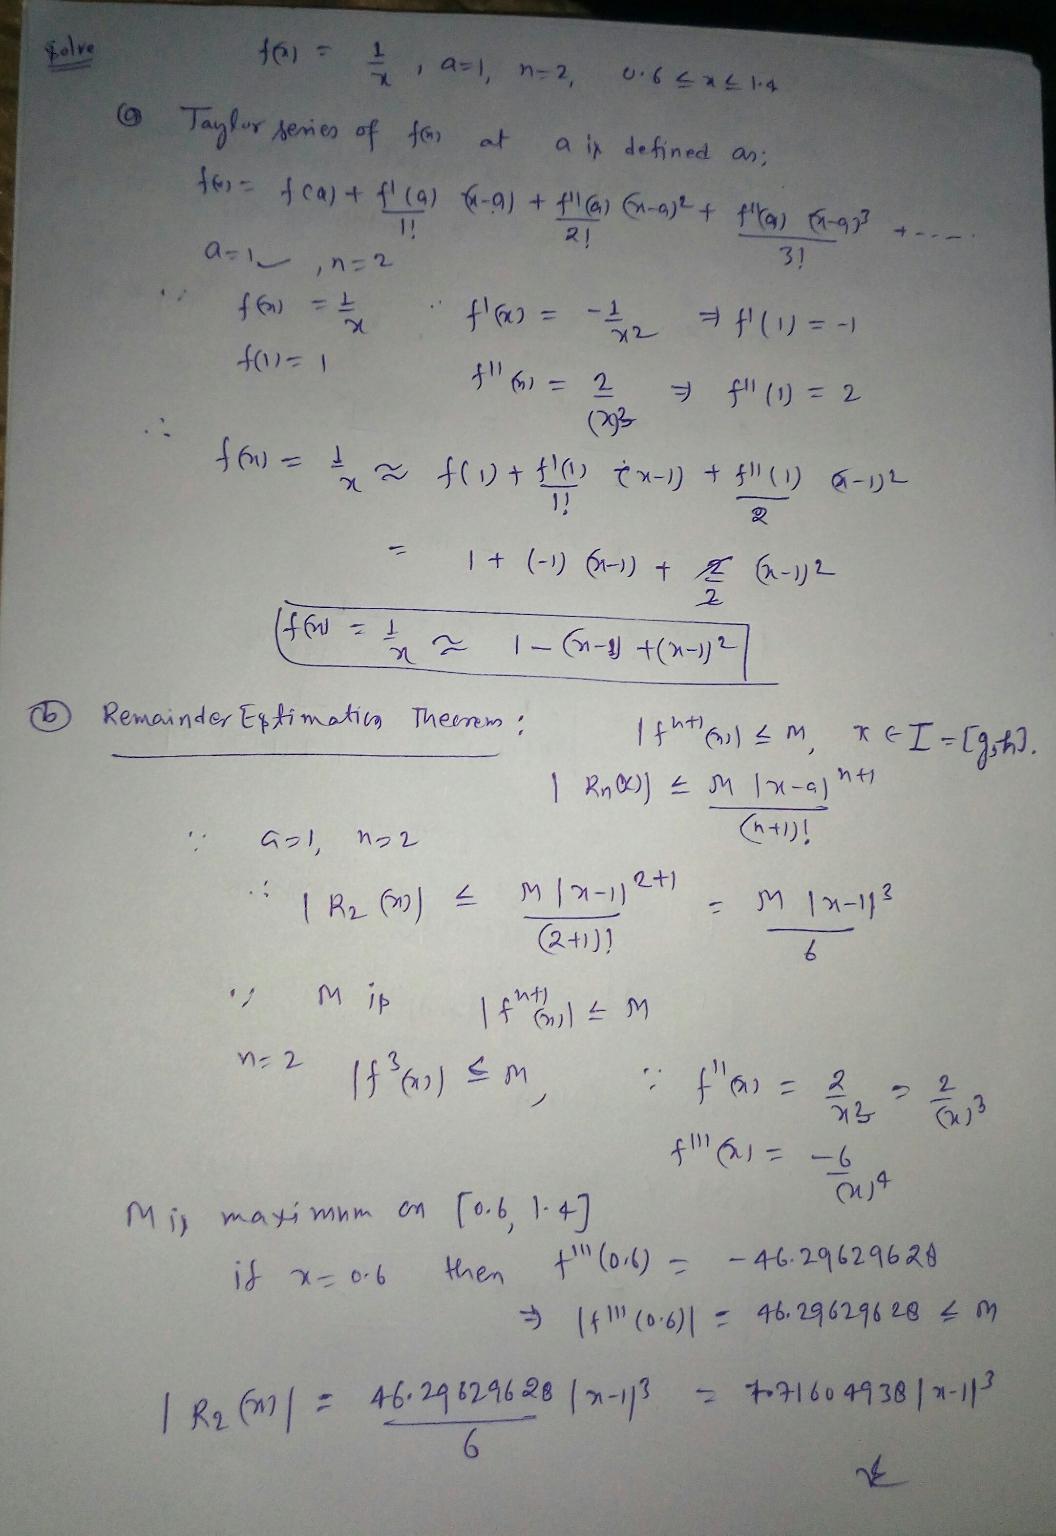 Solve f(x) = 1/x , a=1, n=2, 0.6 ≤ x ≤ 1.4
(a) Taylor series of f(x) at a is defined as;
f(x) = f(a) + f'(a)/1! (x-a) + f''(a)/2! (x-a)² + f'''(a)/3! (x-a)³ + .....
a=1 , n=2
∵ f(x) = 1/x ∵ f'(x) = -1/x² ⇒ f'(1) = -1
f(1) = 1 f''(x) = 2/(x)³ ⇒ f''(1) = 2
∴ f(x) = 1/x ≈ f(1) + f'(1)/1! (x-1) + f''(1)/2 (x-1)²
= 1 + (-1) (x-1) + 2/2 (x-1)²
f(x) = 1/x ≈ 1 - (x-1) + (x-1)²
(b) Remainder Estimation Theorem : |fⁿ⁺¹(x)| ≤ M, x ∈ I = [g,h].
|Rn(x)| ≤ M |x-a|ⁿ⁺¹/(n+1)!
∵ a=1, n=2
∴ |R₂(x)| ≤ M |x-1|²⁺¹/(2+1)! = M |x-1|³/6
∵ M is |fⁿ⁺¹(x)| ≤ M
n=2 |f³(x)| ≤ M, ∵ f''(x) = 2/x³ = 2/(x)³
f'''(x) = -6/(x)⁴
M is maximum on [0.6, 1.4]
if x=0.6 then f'''(0.6) = -46.29629628
⇒ |f'''(0.6)| = 46.29629628 ≤ M
|R₂(x)| = 46.29629628/6 |x-1|³ = 7.71604938 |x-1|³